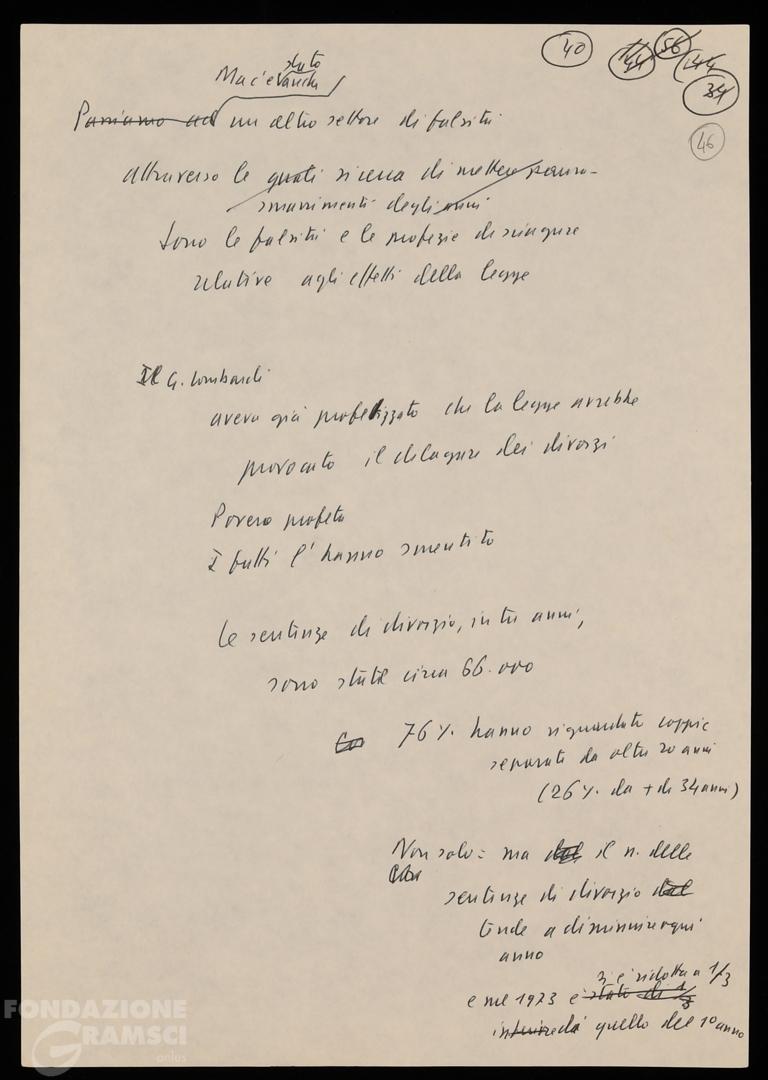 40 44 56 144
34
46
stato
Ma c'è anche
Passiamo ad un altro settore di falsità
attraverso le quali si cerca di mettere paura -
smarrimenti degli animi
Sono le falsità e le profezie di sciagure
relative agli effetti della legge
Il G. Lombardi
aveva già profetizzato che la legge avrebbe
provocato il dilagare dei divorzi
Povero profeta
I fatti l'hanno smentito
Le sentenze di divorzio, in tre anni,
sono state circa 66.000
76% hanno riguardato coppie
separate da oltre 20 anni
(26% da + di 34 anni)
Non solo: ma il n. delle
sentenze di divorzio
tende a diminuire ogni
anno
si è ridotta a 1/3
e nel 1973 è stato di 1/3
di quello del 1° anno
FONDAZIONE
GRAMSCI
onlus